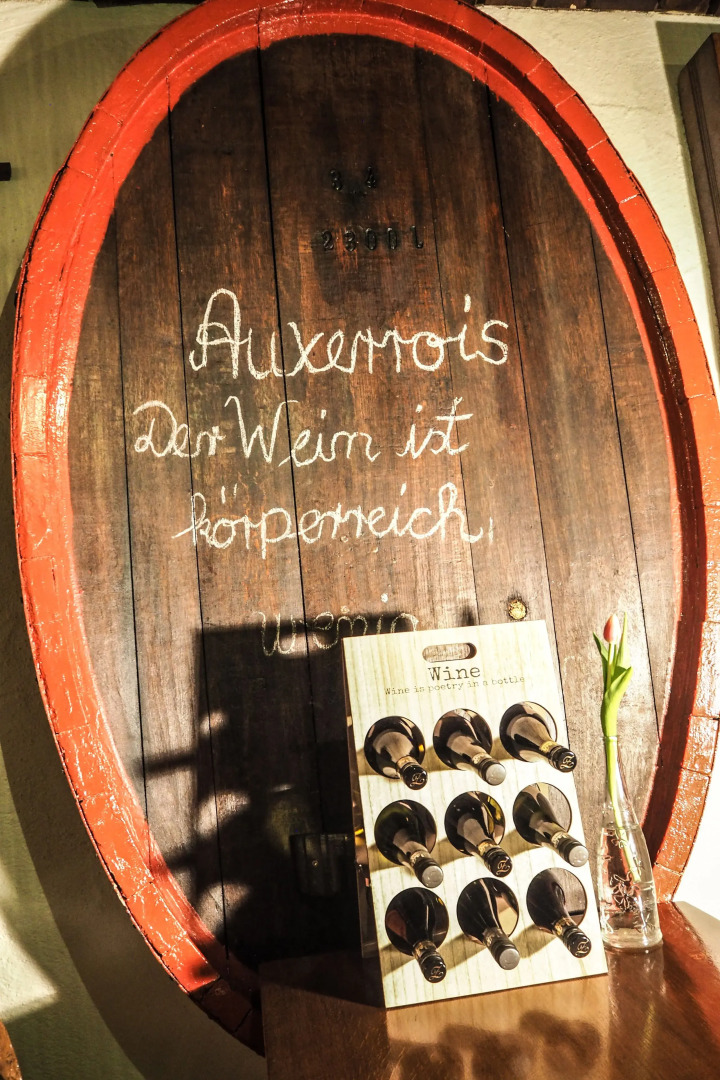 3 4
29001
Auxerrois
Der Wein ist
körperreich,
wenig
Wine
Wine is poetry in a bottle